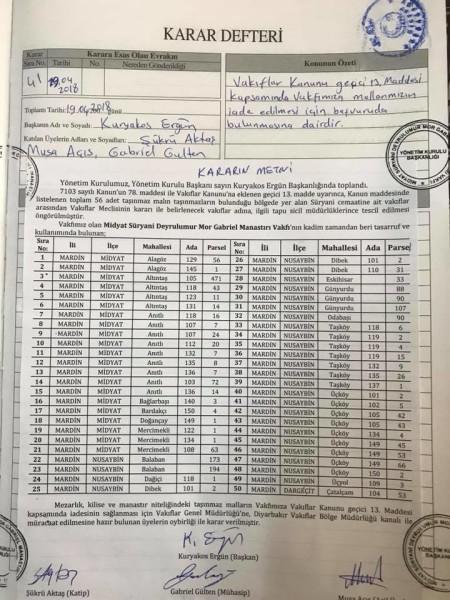 KARAR DEFTERİ
Karar Karara Esas Olan Evrakın
Sıra No. Tarihi No. Nereden Gönderildiği Konunun Özeti
41 19.04.2018
Vakıflar Kanunu geçici 13. Maddesi
kapsamında Vakfımızın mallarımızın
iade edilmesi için başvuruda
bulunmasına dairdir.
Toplantı Tarihi: 19.04.2018
Başkanın Adı ve Soyadı: Kuryakos Ergün
Katılan Üyelerin Adları ve Soyadları: Şükrü Aktaş
Musa Açış, Gabriel Gülten
YÖNETİM KURULU
BAŞKANLIĞI
KARARIN METNİ
Yönetim Kurulumuz, Yönetim Kurulu Başkanı sayın Kuryakos Ergün Başkanlığında toplandı.
7103 sayılı Kanun'un 78. maddesi ile Vakıflar Kanunu'na eklenen geçici 13. madde uyarınca, Kanun maddesinde
listelenen toplam 56 adet taşınmaz malın taşınmazların bulunduğu bölgede yer alan Süryani cemaatine ait vakıflar
arasından Vakıflar Meclisinin kararı ile belirlenecek vakıflar adına, ilgili tapu sicil müdürlüklerince tescil edilmesi
öngörülmüştür.
Vakfımız olan Midyat Süryani Deyrulumur Mor Gabriel Manastırı Vakfı'nın kadim zamandan beri tasarruf ve
kullanımında bulunan;
Sıra No: İli İlçe Mahallesi Ada Parsel Sıra No: İli İlçe Mahallesi Ada Parsel
1 MARDİN MİDYAT Alagöz 129 56 26 MARDİN NUSAYBİN Dibek 101 2
2 MARDİN MİDYAT Alagöz 145 1 27 MARDİN NUSAYBİN Dibek 110 31
3 MARDİN MİDYAT Altıntaş 105 471 28 MARDİN NUSAYBİN Eskihisar 33
4 MARDİN MİDYAT Altıntaş 118 43 29 MARDİN NUSAYBİN Günyurdu 88
5 MARDİN MİDYAT Altıntaş 123 11 30 MARDİN NUSAYBİN Günyurdu 90
6 MARDİN MİDYAT Altıntaş 131 14 31 MARDİN NUSAYBİN Günyurdu 107
7 MARDİN MİDYAT Anıtlı 118 16 32 MARDİN NUSAYBİN Odabaşı 90
8 MARDİN MİDYAT Anıtlı 107 7 33 MARDİN NUSAYBİN Taşköy 118 6
9 MARDİN MİDYAT Anıtlı 107 24 34 MARDİN NUSAYBİN Taşköy 119 2
10 MARDİN MİDYAT Anıtlı 112 20 35 MARDİN NUSAYBİN Taşköy 119 4
11 MARDİN MİDYAT Anıtlı 132 7 36 MARDİN NUSAYBİN Taşköy 119 15
12 MARDİN MİDYAT Anıtlı 135 8 37 MARDİN NUSAYBİN Taşköy 132 9
13 MARDİN MİDYAT Anıtlı 136 7 38 MARDİN NUSAYBİN Taşköy 135 26
14 MARDİN MİDYAT Anıtlı 103 72 39 MARDİN NUSAYBİN Taşköy 137 1
15 MARDİN MİDYAT Anıtlı 136 14 40 MARDİN NUSAYBİN Üçköy 101 2
16 MARDİN MİDYAT Bağlarbaşı 140 3 41 MARDİN NUSAYBİN Üçköy 102 5
17 MARDİN MİDYAT Bardakçı 150 4 42 MARDİN NUSAYBİN Üçköy 105 42
18 MARDİN MİDYAT Doğançay 149 1 43 MARDİN NUSAYBİN Üçköy 105 43
19 MARDİN MİDYAT Mercimekli 122 1 44 MARDİN NUSAYBİN Üçköy 134 4
20 MARDİN MİDYAT Mercimekli 134 1 45 MARDİN NUSAYBİN Üçköy 149 45
21 MARDİN MİDYAT Mercimekli 108 63 46 MARDİN NUSAYBİN Üçköy 149 53
22 MARDİN NUSAYBİN Balaban 173 47 MARDİN NUSAYBİN Üçköy 149 66
23 MARDİN NUSAYBİN Balaban 194 48 MARDİN NUSAYBİN Üçköy 150 2
24 MARDİN NUSAYBİN Dağiçi 118 1 49 MARDİN NUSAYBİN Üçyol 109 3
25 MARDİN NUSAYBİN Dibek 101 2 50 MARDİN DARGEÇİT Çatalçam 104 53
Mezarlık, kilise ve manastır niteliğindeki taşınmaz malların Vakfımıza Vakıflar Kanunu geçici 13. Maddesi
kapsamında iadesinin sağlanması için Vakıflar Genel Müdürlüğü'ne, Diyarbakır Vakıflar Bölge Müdürlüğü kanalı ile
müracaat edilmesine hazır bulunan üyelerin oybirliği ile karar verilmiştir.
K. Ergün
Kuryakos Ergün (Başkan)
Şükrü Aktaş (Katip)
Gabriel Gülten (Muhasip)